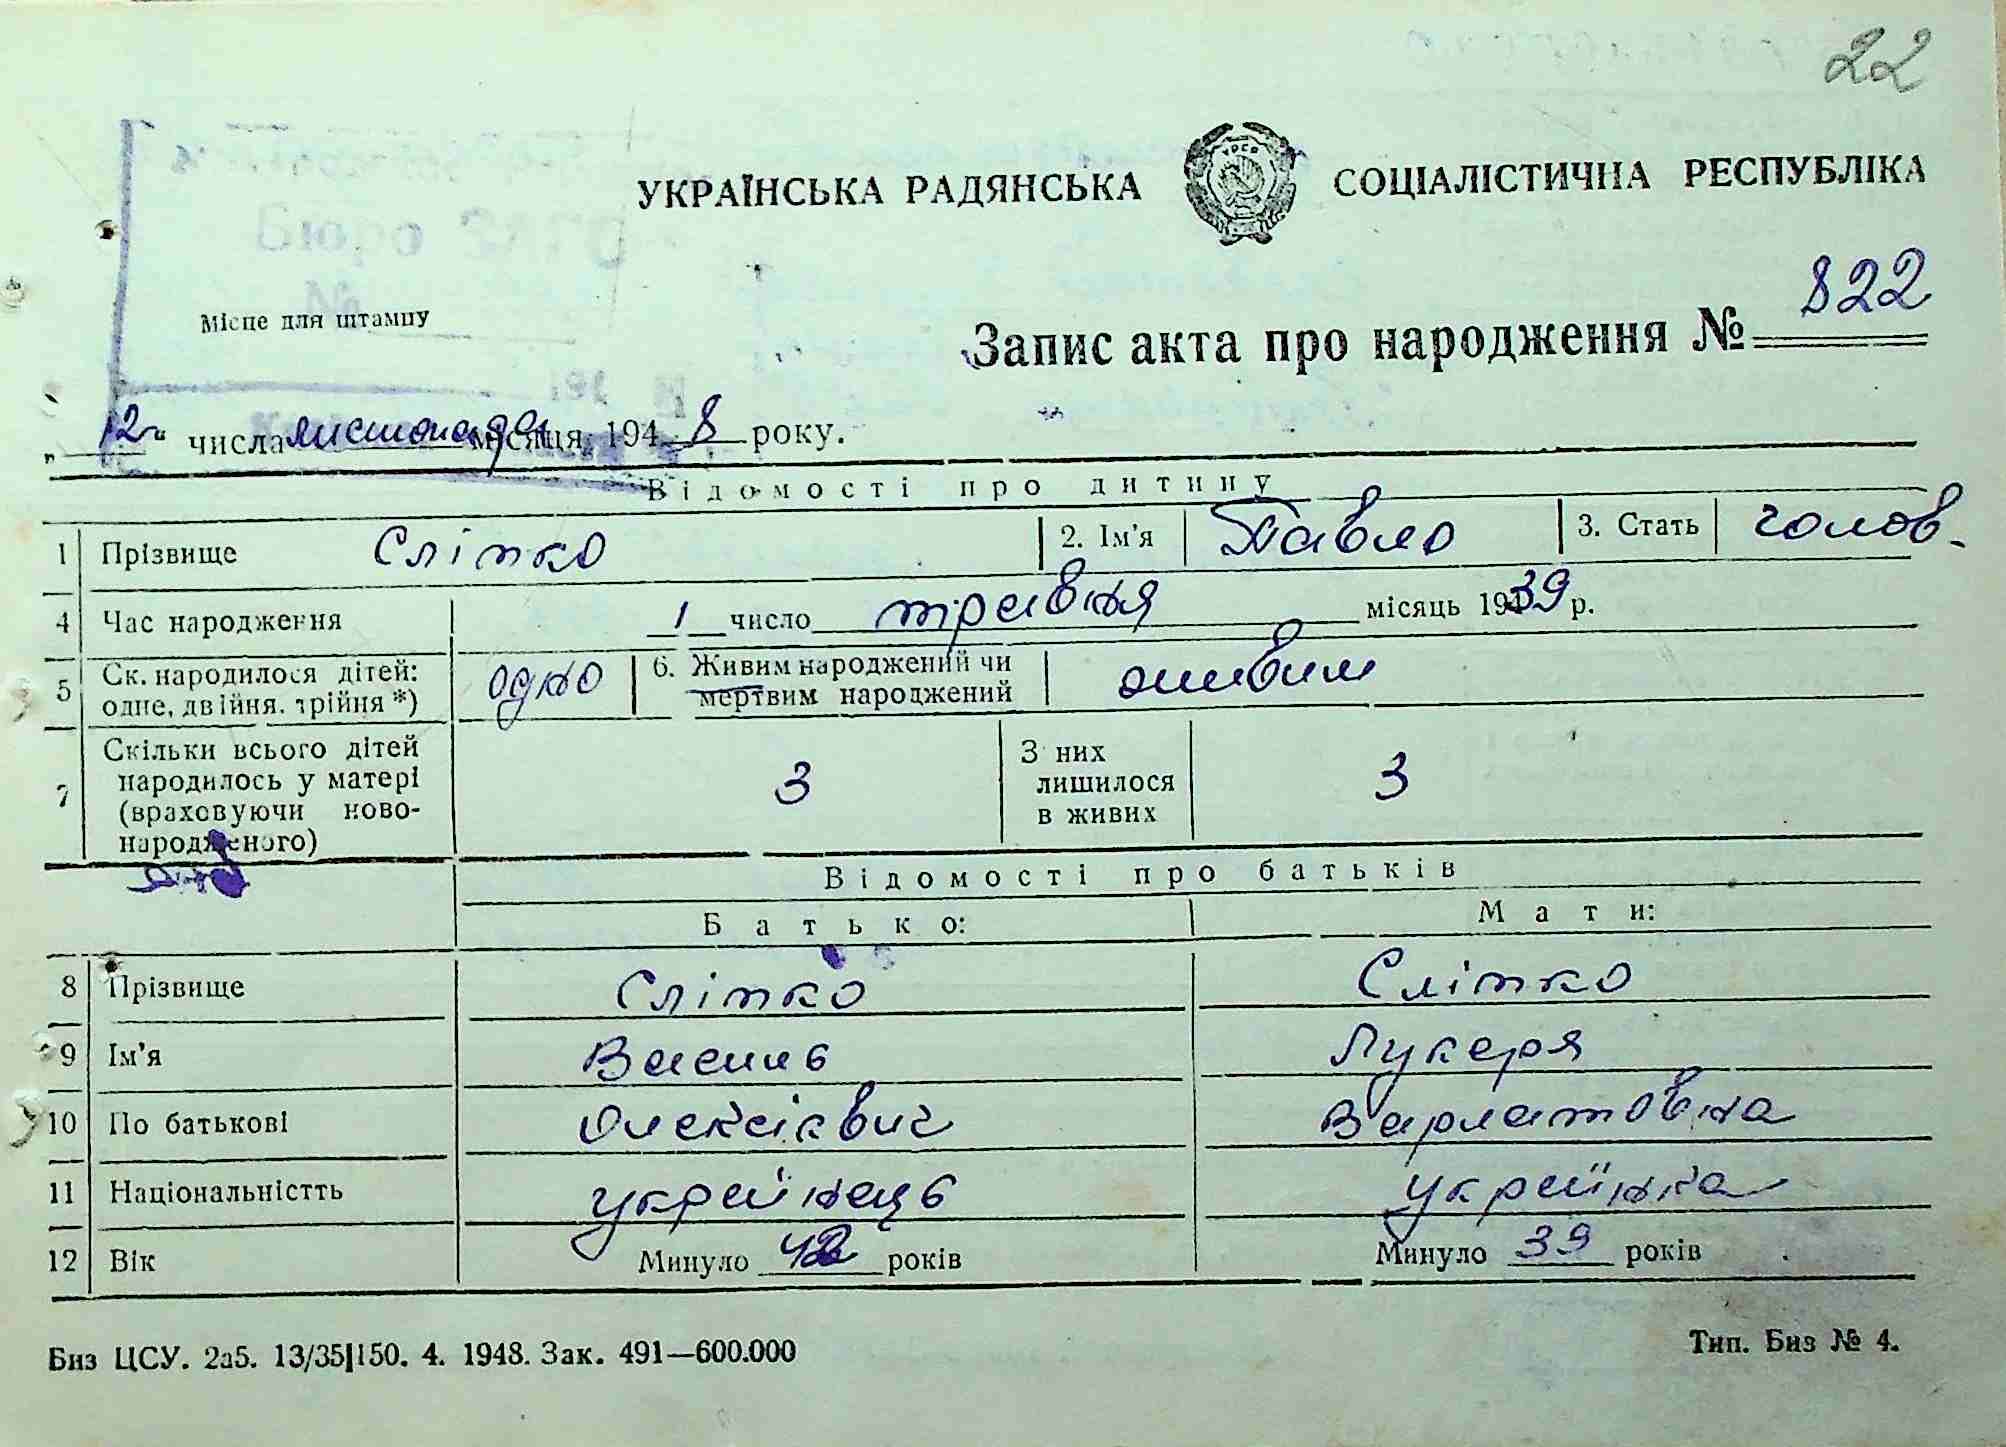 22
УКРАЇНСЬКА РАДЯНСЬКА СОЦІАЛІСТИЧНА РЕСПУБЛІКА
Бюро ЗАГС
№
Місце для штампу
Запис акта про народження № 822
"12" числа листопада місяця, 1948 року.
Відомості про дитину
1 Прізвище Слітко 2. Ім'я Павло 3. Стать чолов.
4 Час народження 1 число травня місяць 1939 р.
5 Ск. народилося дітей: одне, двійня. трійня *) одно 6. Живим народжений чи мертвим народжений живим
7 Скільки всього дітей народилось у матері (враховуючи новонародженого) 3 З них лишилося в живих 3
Відомості про батьків
Батько: Мати:
8 Прізвище Слітко Слітко
9 Ім'я Василь Лукеря
10 По батькові Олексієвич Варламовна
11 Національністть українець українка
12 Вік Минуло 42 років Минуло 39 років
Биз ЦСУ. 2а5. 13/35|150. 4. 1948. Зак. 491—600.000 Тип. Биз № 4.